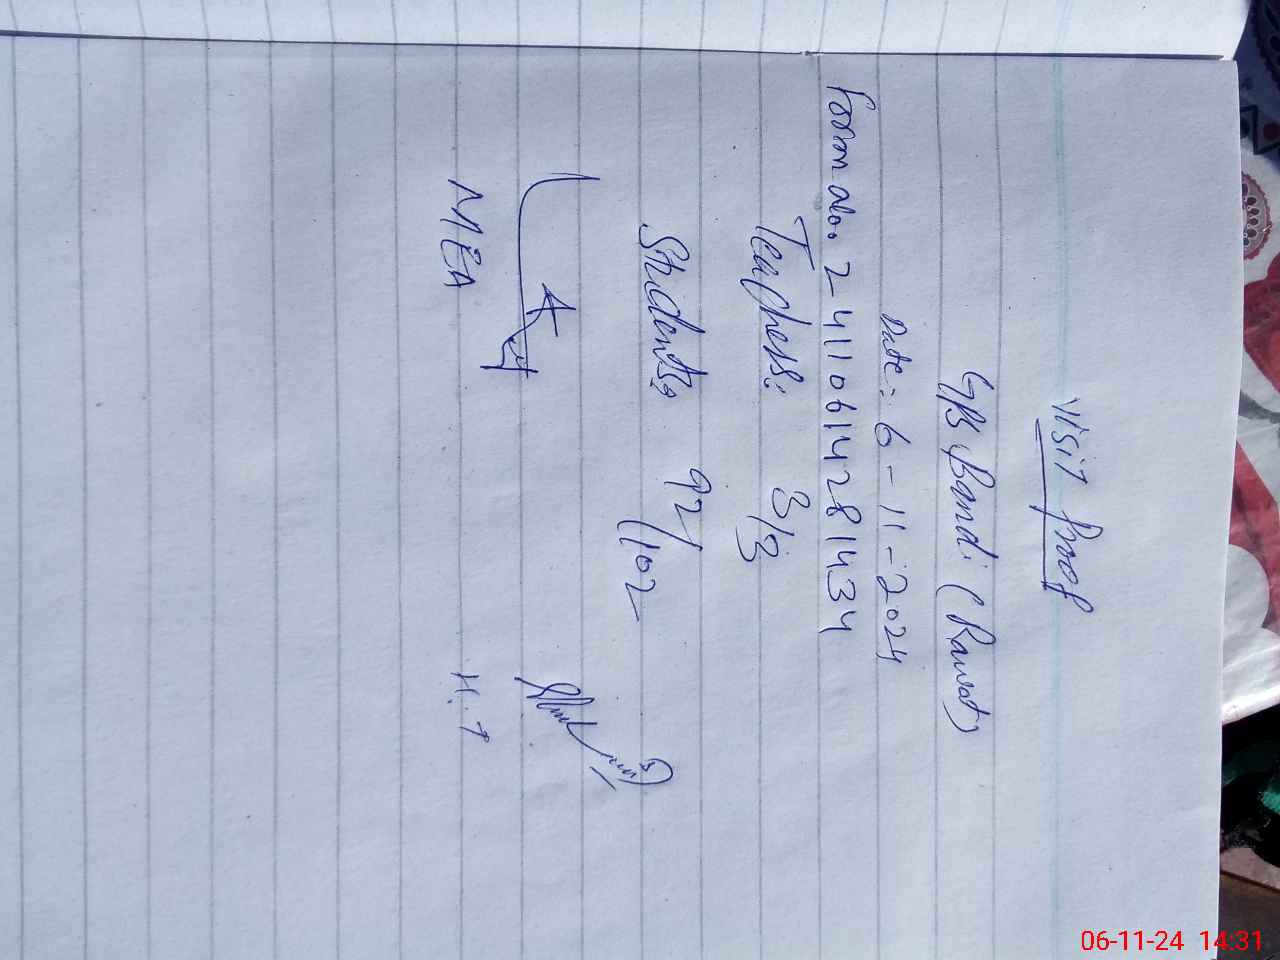 Visit Proof
GPS Bandi (Rawat)
Date: 6-11-2024
Form No. 24110614281434
Teachers: 3/3
Students: 92/102
MEA
H.T
06-11-24 14:31